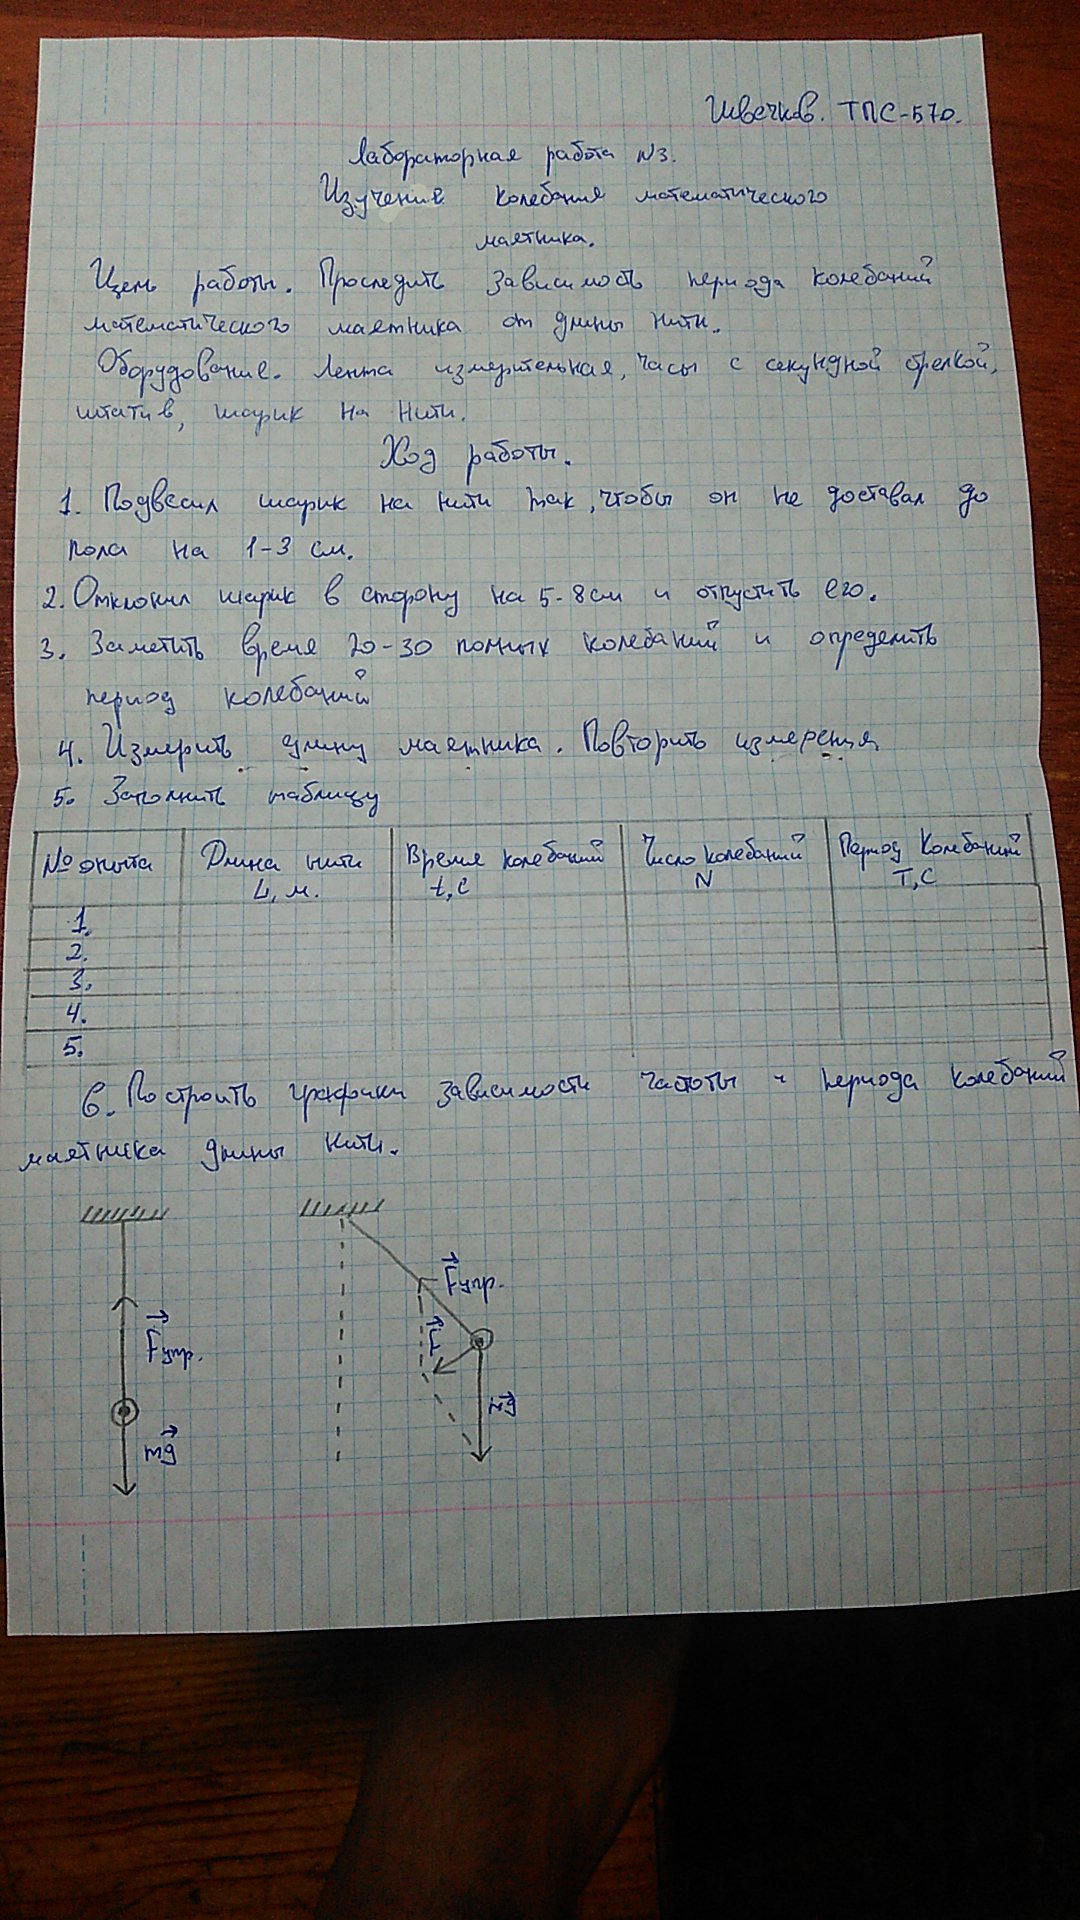 Швечков. ТПС-570.
Лабораторная работа №3.
Изучение колебания математического
маятника.
Цель работы. Проследить зависимость периода колебаний
математического маятника от длины нити.
Оборудование. Лента измерительная, часы с секундной стрелкой,
штатив, шарик на нити.
Ход работы.
1. Подвесил шарик на нити так, чтобы он не доставал до
пола на 1-3 см.
2. Отклонил шарик в сторону на 5-8см и отпустить его.
3. Заметить время 20-30 полных колебаний и определить
период колебаний
4. Измерить длину маятника. Повторить измерения
5. Заполнить таблицу
№ опыта Длина нити L, м. Время колебаний t, с Число колебаний N Период Колебаний T, С
1.
2.
3.
4.
5.
6. Построить графики зависимости частоты и периода колебаний
маятника длины нити.
Fупр. Fупр.
F
mg mg